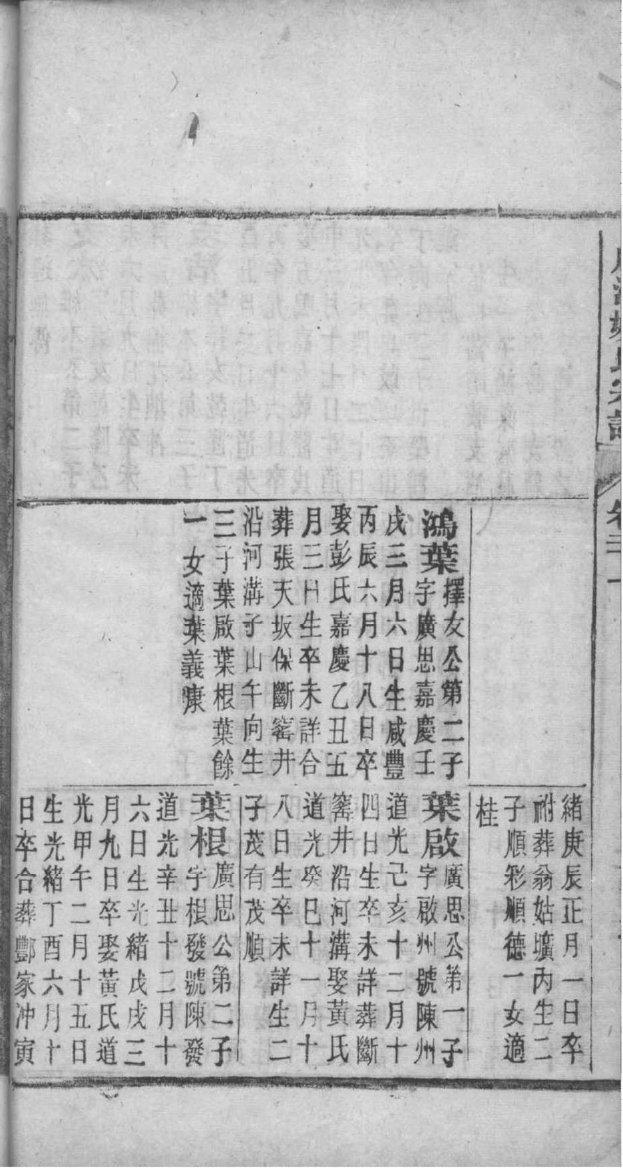 氏宗譜
卷
鴻葉擇友公第二子
字廣思嘉慶壬
戌三月六日生咸豐
丙辰六月十八日卒
娶彭氏嘉慶乙丑五
月三日生卒未詳合
葬張天坂保斷窰井
沿河溝子山午向生
三子葉啟葉根葉餘
一女適葉義康
緒庚辰正月一日卒
祔葬翁姑壙丙生二
子順彩順德一女適
桂
葉啟廣思公第一子
字啟州號陳州
道光己亥十二月十
四日生卒未詳葬斷
窰井沿河溝娶黃氏
道光癸巳十一月十
八日生卒未詳生二
子茂有茂順
葉根廣思公第二子
字根發號陳發
道光辛丑十二月十
六日生光緒戊戌三
月九日卒娶黃氏道
光甲午二月十五日
生光緒丁酉六月十
日卒合葬酆家冲寅